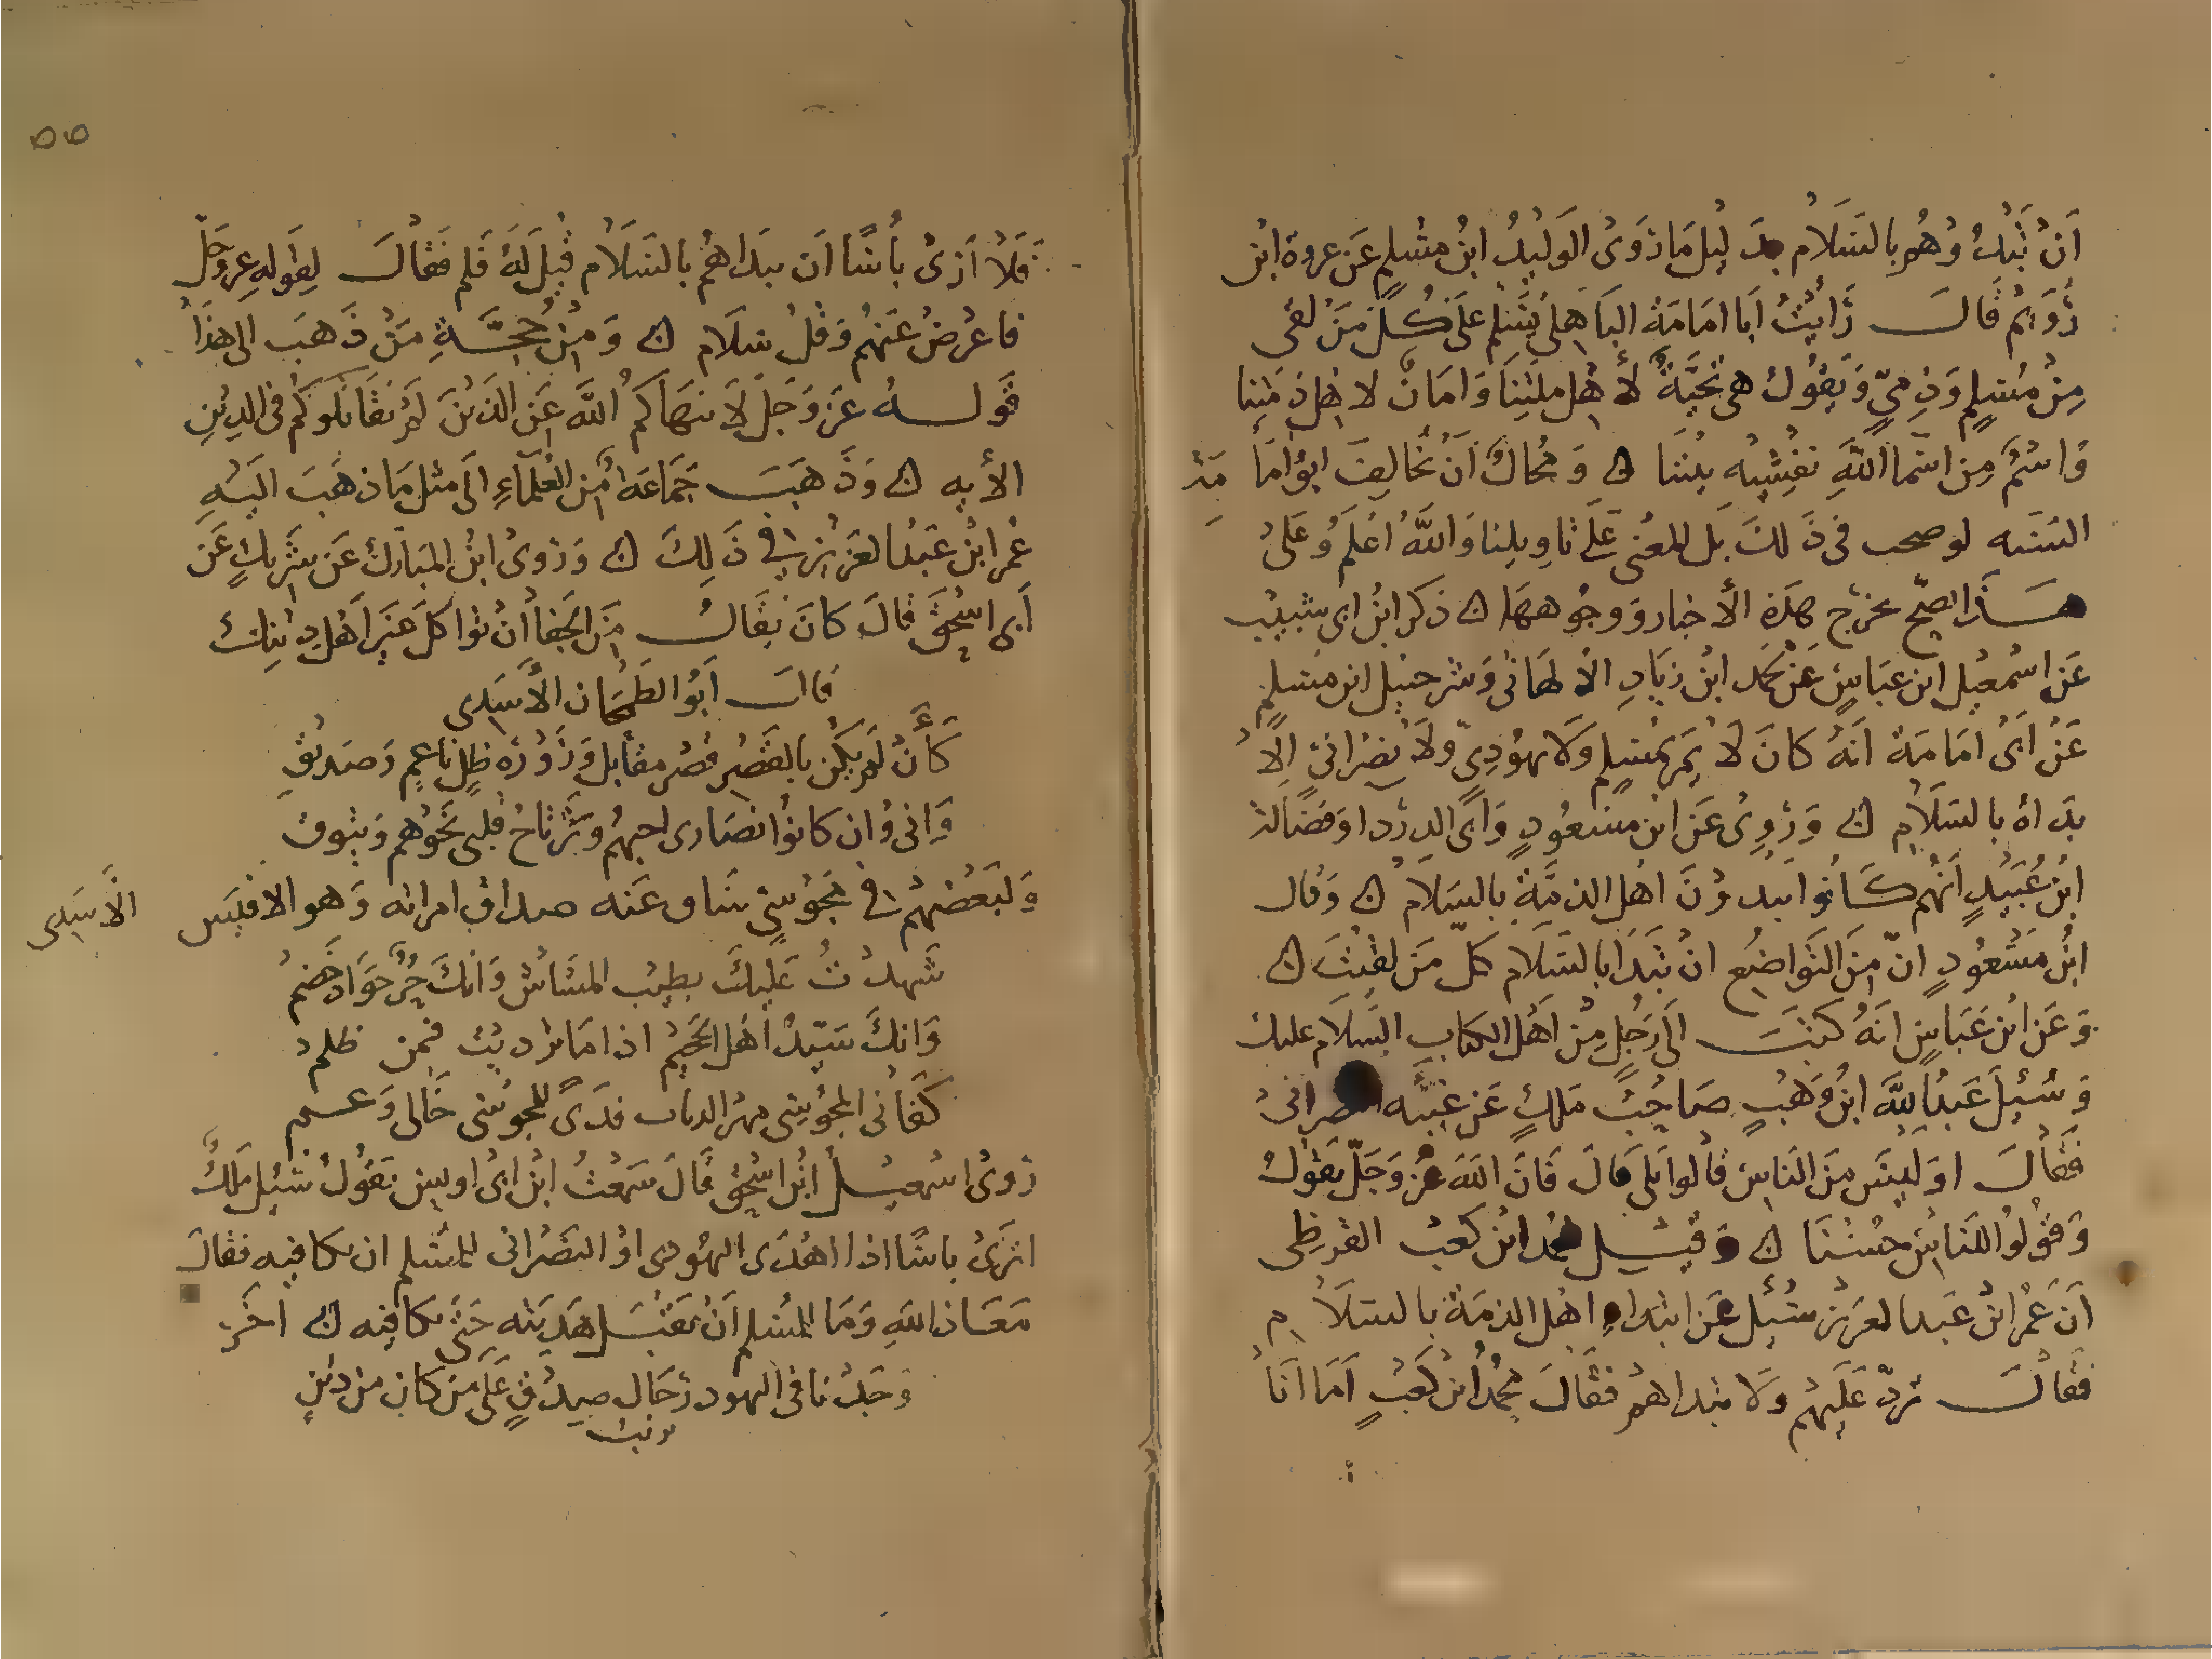 أن تبدؤهم بالسلام بدليل ما روى الوليد ابن مسلم عن عروة ابن
رويم قال رأيت أبا امامة الباهلي يسلم على كل من لقي
من مسلم وذمي ويقول هي تحية لأهل ملتنا وامان لاهل ذمتنا
واسم من اسما الله نفشيه بيننا ومحال أن يخالف ابو امامة
السنه لو صحت في ذلك بل المعنى على تاويلنا والله أعلم وعلى
هذا يصح مخرج هذه الأخبار ووجوهها ذكر ابن ابي شيبة
عن اسمعيل ابن عياش عن محمد ابن زياد الألهاني وشرحبيل ابن مسلم
عن أبي امامة انه كان لا يمر بمسلم ولا يهودي ولا نصراني إلا
بدأه بالسلام وروي عن ابن مسعود وابي الدردا وفضالة
ابن عبيد أنهم كانوا يبدؤن اهل الذمة بالسلام وقال
ابن مسعود ان من التواضع ان تبدا بالسلام كل من لقيت
وعن ابن عباس انه كتب الى رجل من اهل الكتاب السلام عليك
وسئل عبد الله ابن وهب صاحب ملك عن غيبه النصراني
فقال اوليس من الناس قالوا بلى قال فان الله عز وجل يقول
وقولوا للناس حسنا وقيل لمحمد ابن كعب القرظي
ان عمر ابن عبد العزيز سئل عن ابتداء اهل الذمة بالسلام
فقال نرد عليهم ولا نبداهم فقال محمد ابن كعب أما أنا
فلا أرى بأسا ان نبداهم بالسلام قيل له فلم فقال لقوله عز وجل
فاعرض عنهم وقل سلام ومن حجة من ذهب الى هذا
قوله عز وجل لا ينهاكم الله عن الذين لم يقاتلوكم في الدين
الأيه وذهب جماعة من العلماء الى مثل ما ذهب اليه
عمر ابن عبد العزيز في ذلك وروى ابن المبارك عن شريك عن
أبي اسحق قال كان يقال من الجفا أن تواكل غير أهل دينك
قال أبو الطمحان الأسدي
كأن لم يكن بالقصر قصر مقاتل وزورة ظل ناعم وصديق
واني وان كانوا نصارى احبهم ويرتاح قلبي نحوهم ويتوق
ولبعضهم في مجوسي ساق عنه صداق امراته وهو الاقيس
الأسدي
شهدت عليك بطيب المشاش وانك حر جواد خضم
وانك سيد اهل الجحيم اذا ما ترديت فيمن ظلم
كفاني المجوسي مهر الرباب فدى للمجوسي خالي وعم
روى اسمعيل ابن اسحق قال سمعت ابن ابي اويس يقول سئل ملك
اترى باسا اذا اهدى اليهودي او النصراني للمسلم ان يكافيه فقال
معاذ الله وما للمسلم أن يقبل هديته حتى يكافيه اخر
وجدنا في اليهود رجال صدق على من كان من دين
يريب